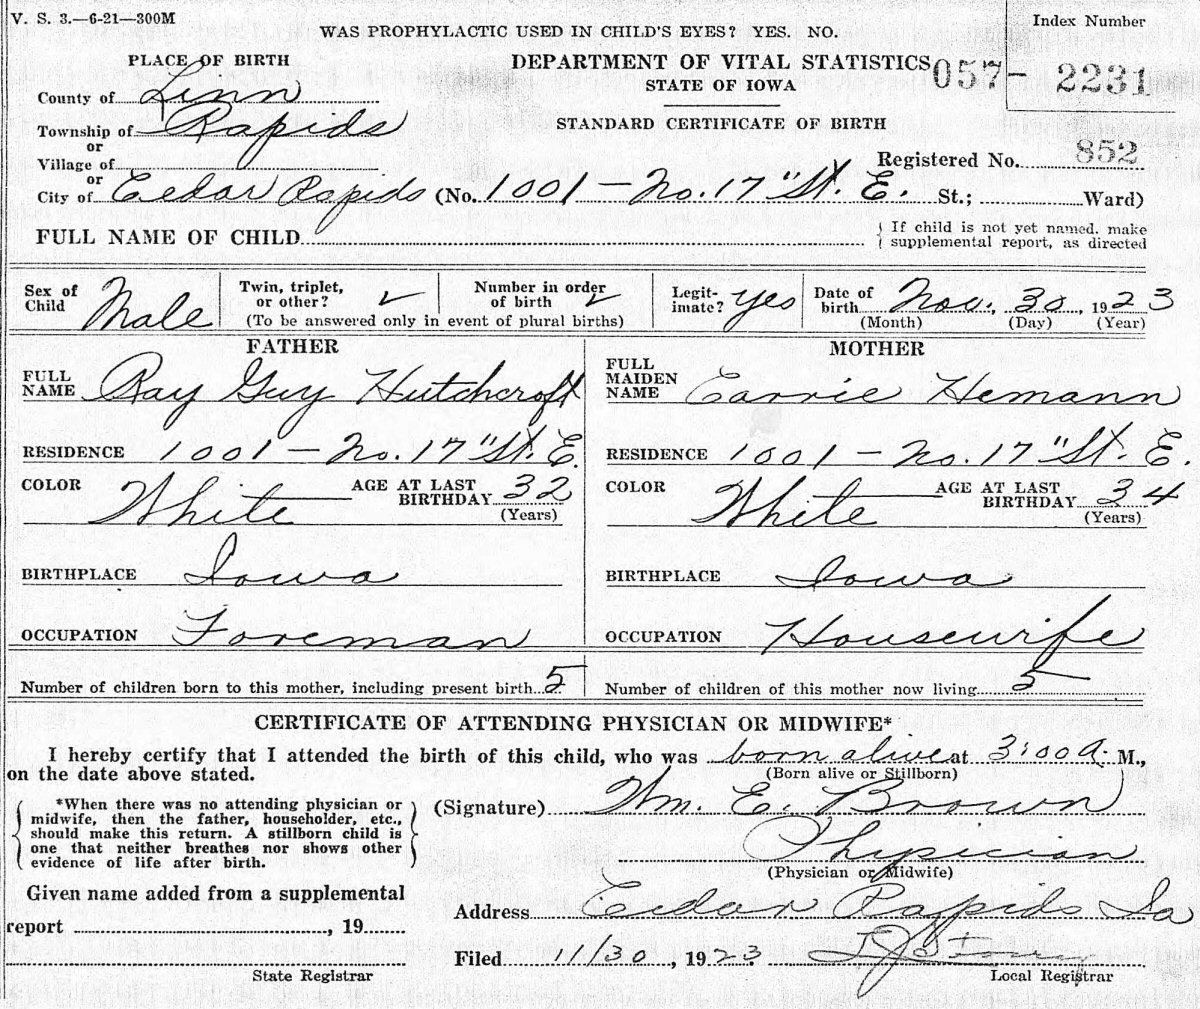 V. S. 3.—6-21—300M
Index Number
WAS PROPHYLACTIC USED IN CHILD'S EYES? YES. NO.
PLACE OF BIRTH
DEPARTMENT OF VITAL STATISTICS
057- 2231
County of Linn
STATE OF IOWA
Township of Rapids
STANDARD CERTIFICATE OF BIRTH
or
Village of
Registered No. 852
or
City of Cedar Rapids (No. 1001 - No. 17" St. E. St.; Ward)
FULL NAME OF CHILD
If child is not yet named, make
supplemental report, as directed
Sex of Child Male
Twin, triplet, or other? ✓
Number in order of birth ✓
(To be answered only in event of plural births)
Legit-imate? yes
Date of birth Nov. 30, 1923
(Month) (Day) (Year)
FATHER
FULL NAME Ray Guy Hutchcroft
RESIDENCE 1001 - No. 17" St. E.
COLOR White AGE AT LAST BIRTHDAY 32
(Years)
BIRTHPLACE Iowa
OCCUPATION Foreman
MOTHER
FULL MAIDEN NAME Carrie Hemann
RESIDENCE 1001 - No. 17" St. E.
COLOR White AGE AT LAST BIRTHDAY 34
(Years)
BIRTHPLACE Iowa
OCCUPATION Housewife
Number of children born to this mother, including present birth 5
Number of children of this mother now living 5
CERTIFICATE OF ATTENDING PHYSICIAN OR MIDWIFE*
I hereby certify that I attended the birth of this child, who was born alive at 3:00 A. M.,
on the date above stated.
(Born alive or Stillborn)
*When there was no attending physician or
midwife, then the father, householder, etc.,
should make this return. A stillborn child is
one that neither breathes nor shows other
evidence of life after birth.
(Signature) Wm. E. Brown
Physician
(Physician or Midwife)
Given name added from a supplemental
report , 19
State Registrar
Address Cedar Rapids Ia
Filed 11/30, 1923
Local Registrar